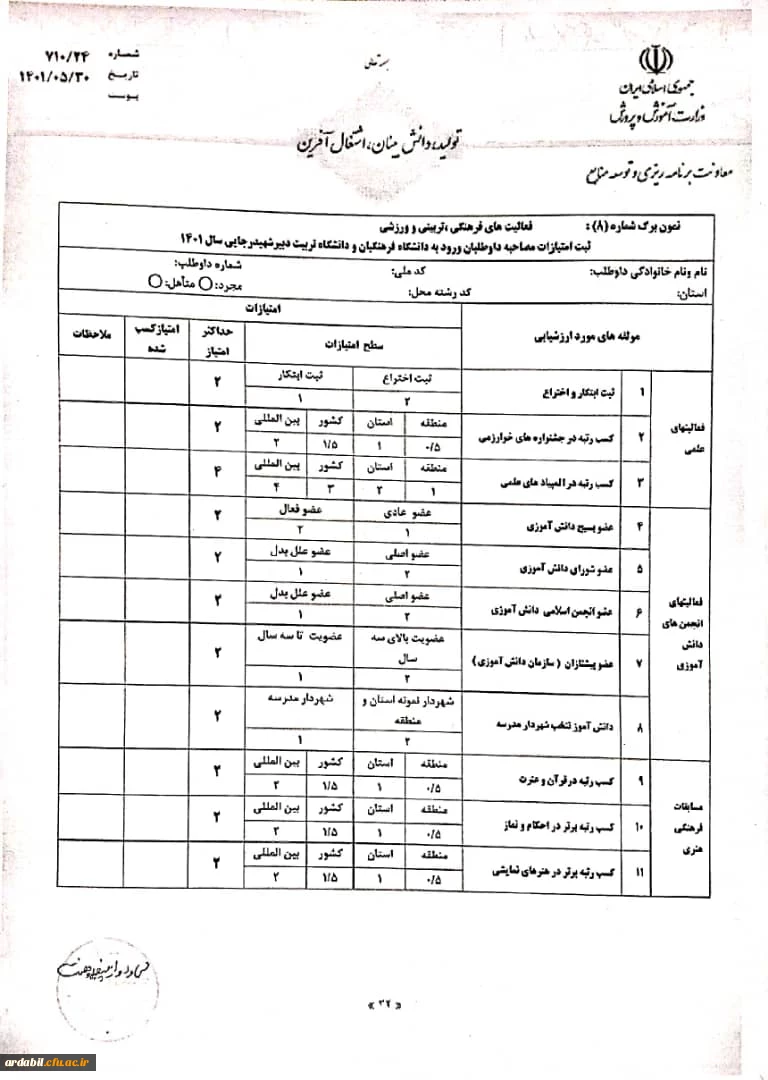 بسمه تعالی
جمهوری اسلامی ایران
وزارت آموزش و پرورش
معاونت برنامه ریزی و توسعه منابع
شماره ۷۱۰/۲۴
تاریخ ۱۴۰۱/۰۵/۳۰
پیوست
تولید، دانش بنیان، اشتغال آفرین
نمون برگ شماره (۸) : فعالیت های فرهنگی ،تربیتی و ورزشی
ثبت امتیازات مصاحبه داوطلبان ورود به دانشگاه فرهنگیان و دانشگاه تربیت دبیر شهیدرجایی سال ۱۴۰۱
نام ونام خانوادگی داوطلب: کد ملی: شماره داوطلب:
استان: کد رشته محل: مجرد: متأهل:
مولفه های مورد ارزشیابی امتیازات
سطح امتیازات حداکثر امتیاز امتیازکسب شده ملاحظات
فعالیتهای علمی
۱ ثبت ابتکار و اختراع ثبت اختراع ثبت ابتکار ۲
۲ ۱
۲ کسب رتبه در جشنواره های خوارزمی منطقه استان کشور بین المللی ۲
۰/۵ ۱ ۱/۵ ۲
۳ کسب رتبه در المپیاد های علمی منطقه استان کشور بین المللی ۴
۱ ۲ ۳ ۴
فعالیتهای انجمن های دانش آموزی
۴ عضو بسیج دانش آموزی عضو عادی عضو فعال ۲
۱ ۲
۵ عضو شورای دانش آموزی عضو اصلی عضو علل بدل ۲
۲ ۱
۶ عضو انجمن اسلامی دانش آموزی عضو اصلی عضو علل بدل ۲
۲ ۱
۷ عضو پیشتازان ( سازمان دانش آموزی) عضویت بالای سه سال عضویت تا سه سال ۲
۲ ۱
۸ دانش آموز منتخب شهردار مدرسه شهردار نمونه استان و منطقه شهردار مدرسه ۲
۲ ۱
مسابقات فرهنگی هنری
۹ کسب رتبه در قرآن و عترت منطقه استان کشور بین المللی ۲
۰/۵ ۱ ۱/۵ ۲
۱۰ کسب رتبه برتر در احکام و نماز منطقه استان کشور بین المللی ۲
۰/۵ ۱ ۱/۵ ۲
۱۱ کسب رتبه برتر در هنرهای نمایشی منطقه استان کشور بین المللی ۲
۰/۵ ۱ ۱/۵ ۲
« ۳۲ »
ardabil.cfu.ac.ir